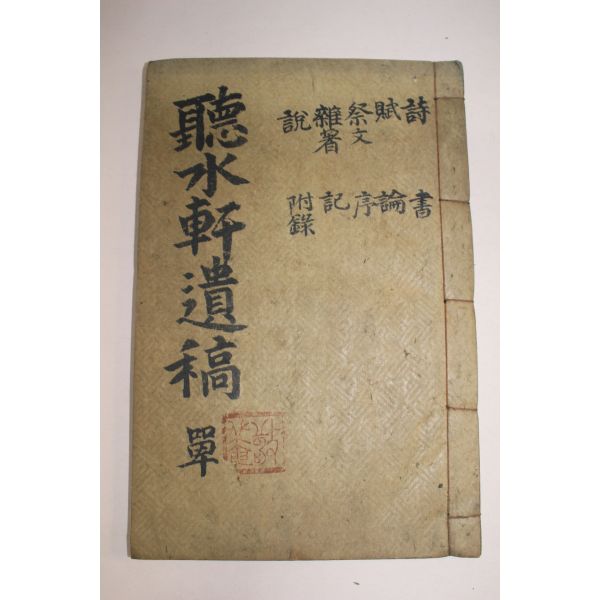 詩 書
賦 論
祭文 序
雜著 記
說 附錄
聽水軒遺稿 單